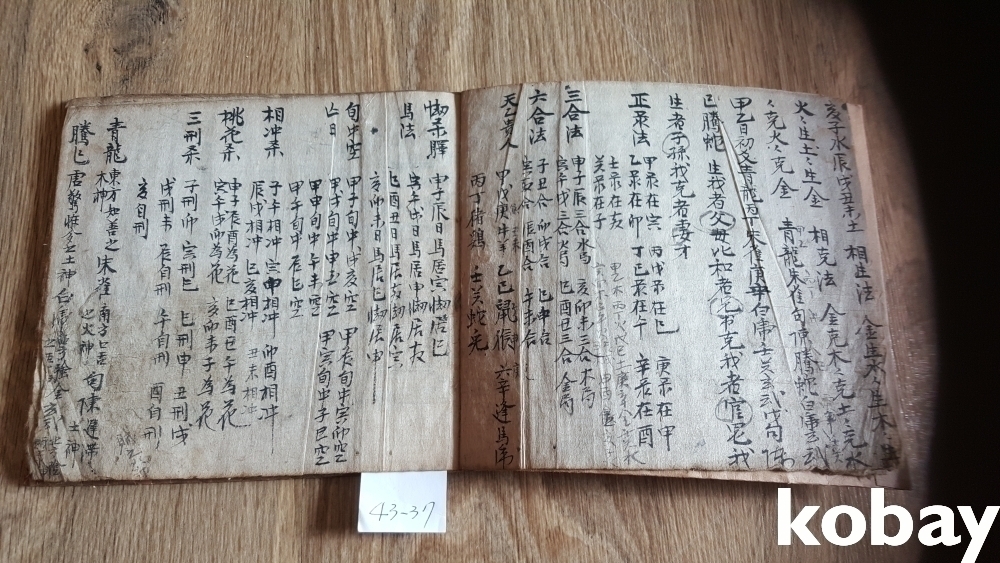 亥子水辰戌丑未土 相生法 金生水水生木
火火生土土生金 相克法 金克木木克土土克水
水克火火克金 青龍朱雀句陳騰蛇白虎玄武
甲乙日初爻青龍丙丁朱雀 白虎壬癸玄武戊句陳
己騰蛇 生我者父母比和者兄弟克我者官鬼我
生者子孫我克者妻才
正彔法 甲彔在寅 丙戊彔在巳 庚彔在申
乙彔在卯 丁己彔在午 辛彔在酉
壬彔在亥
癸彔在子
三合法 申子辰三合水局 亥卯未三合木局
寅午戌三合火局 巳酉丑三合金局
六合法 子丑合 卯戌合 巳申合
寅亥合 辰酉合 午未合
天乙貴人 甲戊庚牛羊 乙己鼠猴 六辛逢馬虎
丙丁猪鷄 壬癸蛇兎
刼杀驛 申子辰日馬居寅刼居巳
馬法 寅午戌日馬居申刼居亥
巳酉丑日馬居亥刼居寅
亥卯未日馬居巳刼居申
旬中空 甲子旬中戌亥空 甲辰旬中寅卯空
亡日 甲戌旬中申酉空 甲寅旬中子丑空
甲申旬中午未空
甲午旬中辰巳空
相冲杀 子午相冲 寅申相冲 卯酉相冲
辰戌相冲 巳亥相冲 丑未相冲
桃花杀 申子辰酉為花 巳酉丑午為花
寅午戌卯為花 亥卯未子為花
三刑杀 子刑卯 寅刑巳 巳刑申 丑刑戌
戌刑未 辰自刑 午自刑 酉自刑
亥自刑
青龍 東方 木神 朱雀 南方 火神 句陳
騰巳 土神 白
43-37
kobay